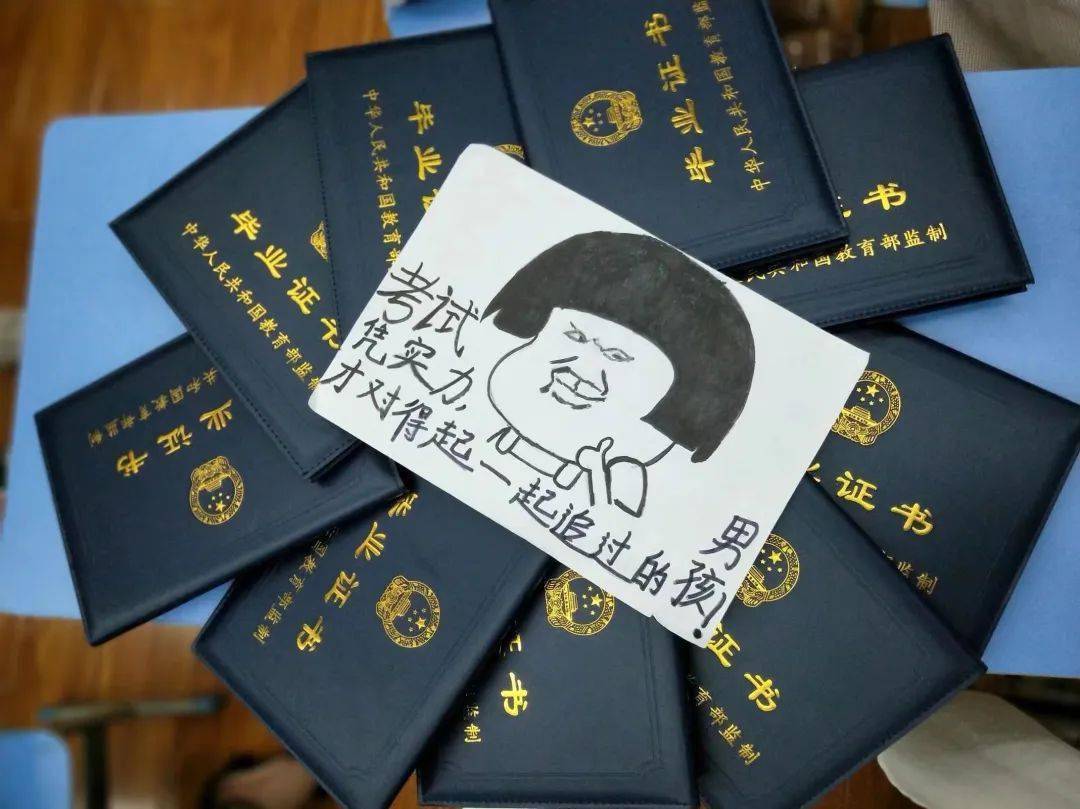 考试
凭实力,
才对得起一起追过的
男孩!
毕业证书
中华人民共和国教育部监
毕业
中华人民共和国教育部
毕业证书
中华人民共和国教育部监制
证书
民共和国教育部监制
业证书
共和国教育部监制
业证书
国教育部监制
业证书
监制
书
监制
证书
教育部监制